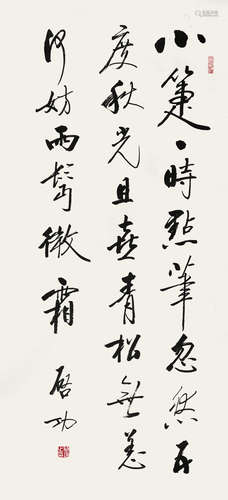 小箑丶時點筆忽然
度秋光且喜青松無恙
何妨兩鬢微霜
启功